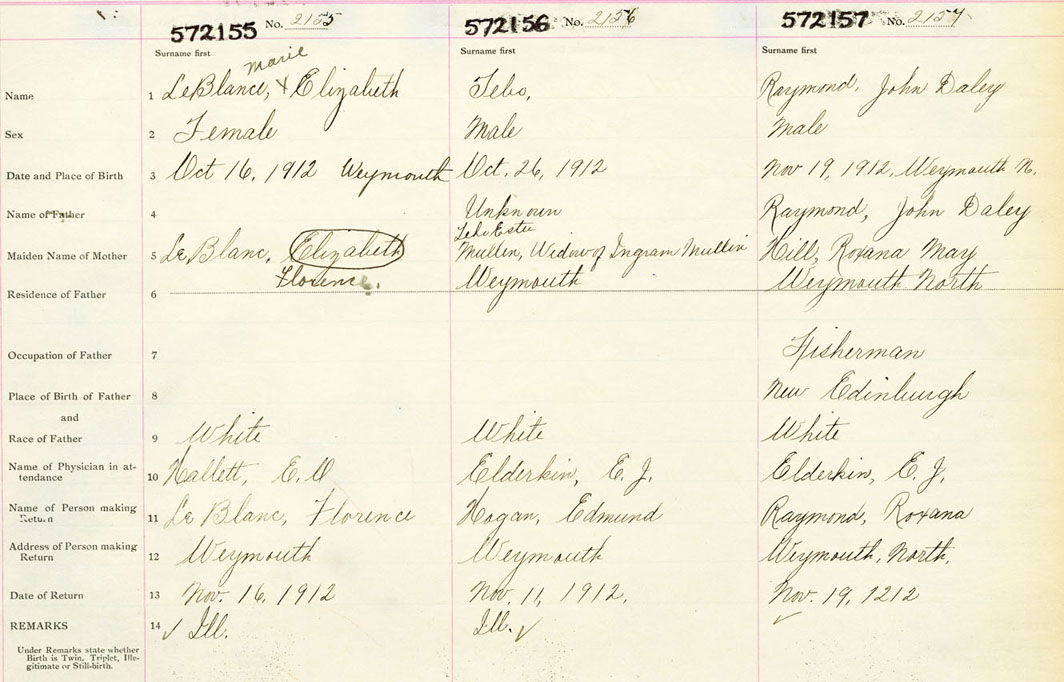 572155 No. 2155 572156 No. 2156 572157 No. 2157
Surname first Surname first Surname first
Marie
Name 1 LeBlanc, x Elizabeth Tebo, Raymond, John Daley
Sex 2 Female Male Male
Date and Place of Birth 3 Oct 16, 1912 Weymouth Oct. 26, 1912 Nov 19, 1912, Weymouth N.
Name of Father 4 Unknown Raymond, John Daley
Maiden Name of Mother 5 LeBlanc, Elizabeth Mullin, Widow of Ingram Mullin Hill, Roxana May
Florence.
Residence of Father 6 Weymouth Weymouth North
Occupation of Father 7 Fisherman
Place of Birth of Father 8 New Edinburgh
and
Race of Father 9 White White White
Name of Physician in at-
tendance 10 Hallett, E.O Elderkin, E. J. Elderkin, E. J.
Name of Person making
Return 11 Le Blanc, Florence Hogan, Edmund Raymond, Roxana
Address of Person making
Return 12 Weymouth Weymouth Weymouth, North.
Date of Return 13 Nov. 16, 1912 Nov. 11, 1912. Nov. 19, 1212
REMARKS 14 ✓ Ill. Ill. ✓
Under Remarks state whether
Birth is Twin, Triplet, Ille-
gitimate or Still-birth.